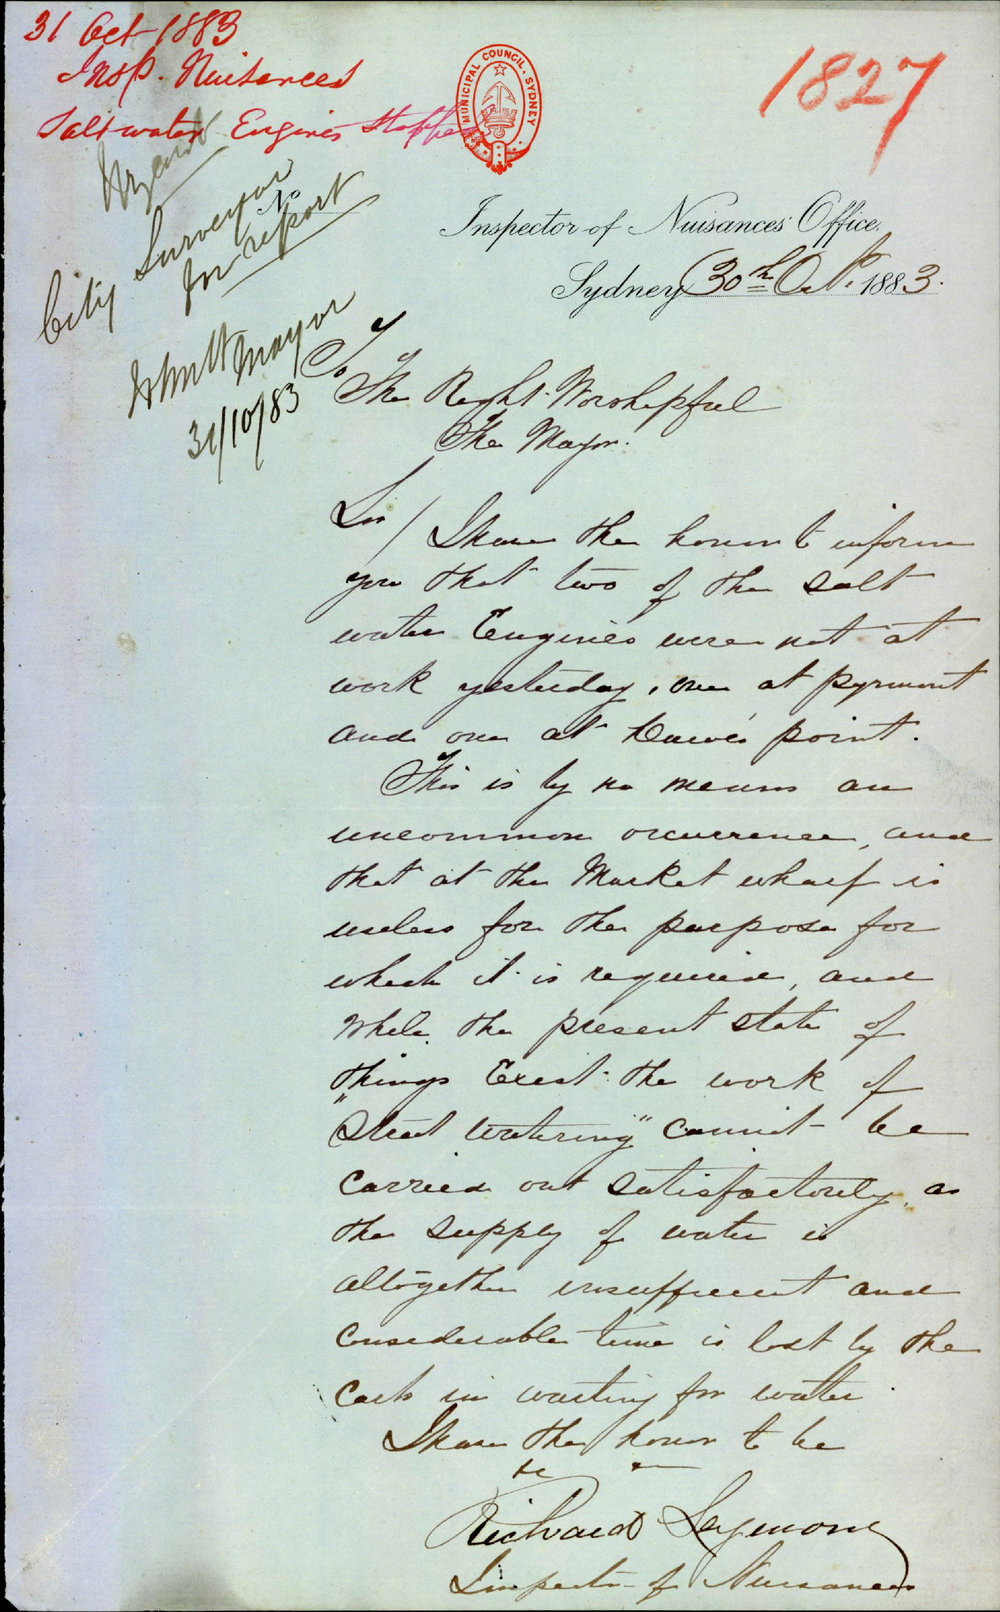 31 Oct 1883
Insp. Nuisances
Salt water Engines Stopped
1827
MUNICIPAL COUNCIL. SYDNEY
Urgent
City Surveyor
for report
Mayor
31/10/83
No
Inspector of Nuisances Office.
Sydney 30th Oct. 1883.
To
The Right Worshipful
The Mayor.
Sir / I have the honor to inform
you that two of the salt
water Engines were not at
work yesterday, one at pyrmont
and one at Dawes point.
This is by no means an
uncommon occurrence, and
that at the Market wharf is
useless for the purpose for
which it is required, and
while the present state of
things Exist the work of
"Street Watering" cannot be
carried out satisfactorily, as
the supply of water is
altogether insufficient and
Considerable time is lost by the
Carts in waiting for water.
I have the honor to be
&c
Richard Seymour
Inspector of Nuisances